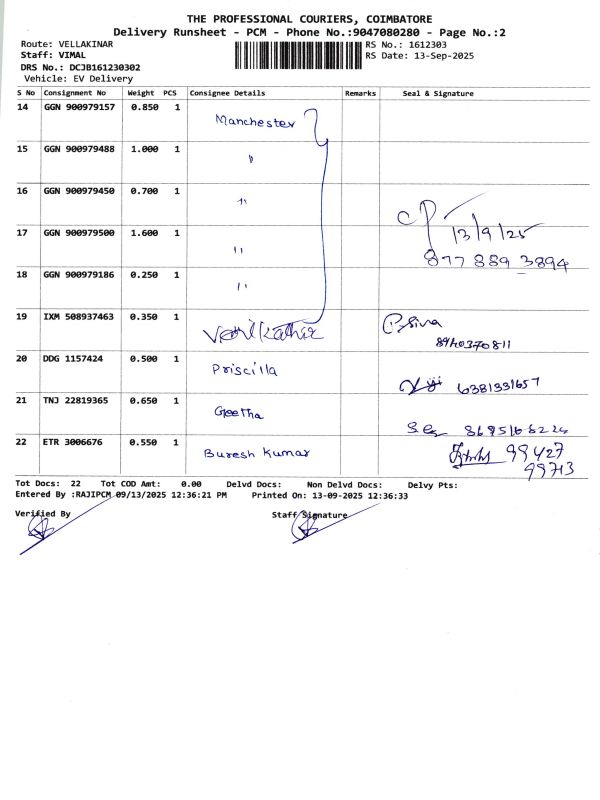 THE PROFESSIONAL COURIERS, COIMBATORE
Delivery Runsheet - PCM - Phone No.:9047080280 - Page No.:2
Route: VELLAKINAR
RS No.: 1612303
Staff: VIMAL
RS Date: 13-Sep-2025
DRS No.: DCJB161230302
Vehicle: EV Delivery
S No Consignment No Weight PCS Consignee Details Remarks Seal & Signature
14 GGN 900979157 0.850 1 Manchester
15 GGN 900979488 1.000 1 "
16 GGN 900979450 0.700 1 "
17 GGN 900979500 1.600 1 " 13/9/25
877 889 3894
18 GGN 900979186 0.250 1 "
19 IXM 508937463 0.350 1 P.Siva
8940370811
20 DDG 1157424 0.500 1 Priscilla 6381331657
21 TNJ 22819365 0.650 1 Geetha
22 ETR 3006676 0.550 1 Buresh Kumar 99427
99713
Tot Docs: 22 Tot COD Amt: 0.00 Delvd Docs: Non Delvd Docs: Delvy Pts:
Entered By :RAJIPCM 09/13/2025 12:36:21 PM Printed On: 13-09-2025 12:36:33
Verified By Staff Signature